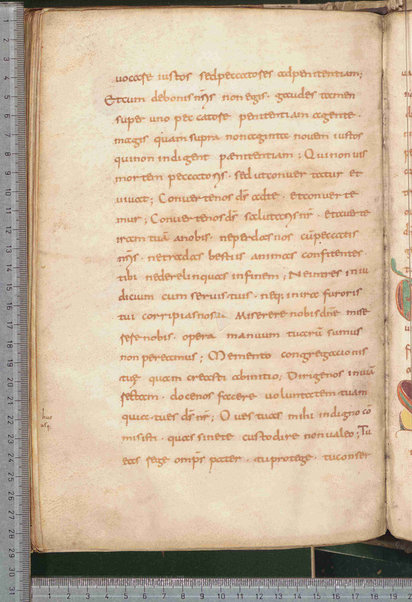 uocare iustos sed peccatores ad penitentiam;
Et cum de bonis nr̄ys non egis · gaudes tamen
super uno peccatore penitentiam agente ·
magis quam supra nonaginta nouem iustos
qui non indigent paenitentiam; Qui non uis
mortem peccatorys · sed ut conuertatur et
uiuat; Conuerte nos d̄s ad te · et conuerte
mur; Conuerte nos d̄s salutarys nr̄ · et auerte
iram tuā a nobis · ne perdas nos cū peccatis
nr̄ys · ne tradas bestiis animas confitentes
tibi ne derelinquas in finem; Ne intres in iu
dicium cum seruis tuis · neq; in ira furoris
tui corripias nos · Miserere nobis dn̄e mise
rere nobis · opera manuum tuarū sumus
non pereamus; Memento congregationis
tuę quam creasti ab initio; Dirige nos in uiā
rectam · doce nos facere uoluntatem tuam
quia tu es d̄s nr̄; Oues tuas mihi indigno cō
misisti · quas sine te custodire non ualeo; Tu
eas rege omp̄s pater · tu protege · tu conser